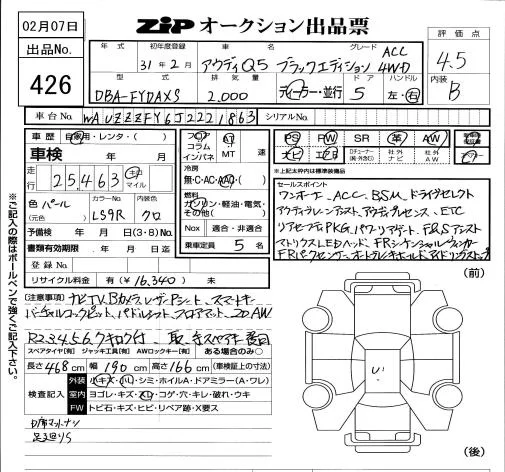 02月07日
ZiP オークション出品票
出品No.
426
年式 初年度登録 車名 グレード
31年2月 アウディQ5 ブラックエディション ACC 4WD
型式 排気量 ドア ハンドル
DBA-FYDAXS 2,000 ディーラー・並行 5 左・右
評価点
4.5
内装
B
車台No. WAUZZZFY6J2221863 シリアルNo.
車歴 自家用・レンタ・( )
車検 年 月
走行 25,463 キロ マイル
色 パール カラーNo. LS9R 内装色 クロ
(元色)
予備検 年 月 日 (3・8)No.
書類有効期限 年 月 日迄
登録No.
リサイクル料金 有(¥16,340) 未
フロア AT
コラム
インパネ MT 速
冷房
無・C・AC・AAC・( )
燃料
ガソリン・軽油・電気・
その他( )
Nox 適合・非適合
乗車定員 5名
PS PW SR 革 AW
ナビ エアB TVチューナー 社外ナビ 社外AW
*上記太枠内は標準装備品
セールスポイント
ワンオーナー、ACC、BSM、ドライブセレクト
アウディレーンアシスト、アウディプレセンス、ETC
リアセーフティPKG、パワーリアゲート
マトリクスLEDヘッド
(注意事項) ナビTV、Bカメラ、レザーPシート、スマートキー
バーチャルコックピット、パドルシフト、フロアマット、20AW
スペアタイヤ[有] ジャッキ工具[有] AWロックキー[有] ある場合のみ○
長さ 468cm 幅 190cm 高さ 166cm (車検証上の寸法)
検査記入
外装 小キズ・凹・シミ・ホイルA・ドアミラー(A・ワレ)
室内 ヨゴレ・キズ・スレ・コゲ・穴・キレ・破れ・ウキ
FW トビ石・キズ・ヒビ・リペア跡・X要ス
※ご記入の際はボールペンで強くご記入下さい。
(前)
(後)